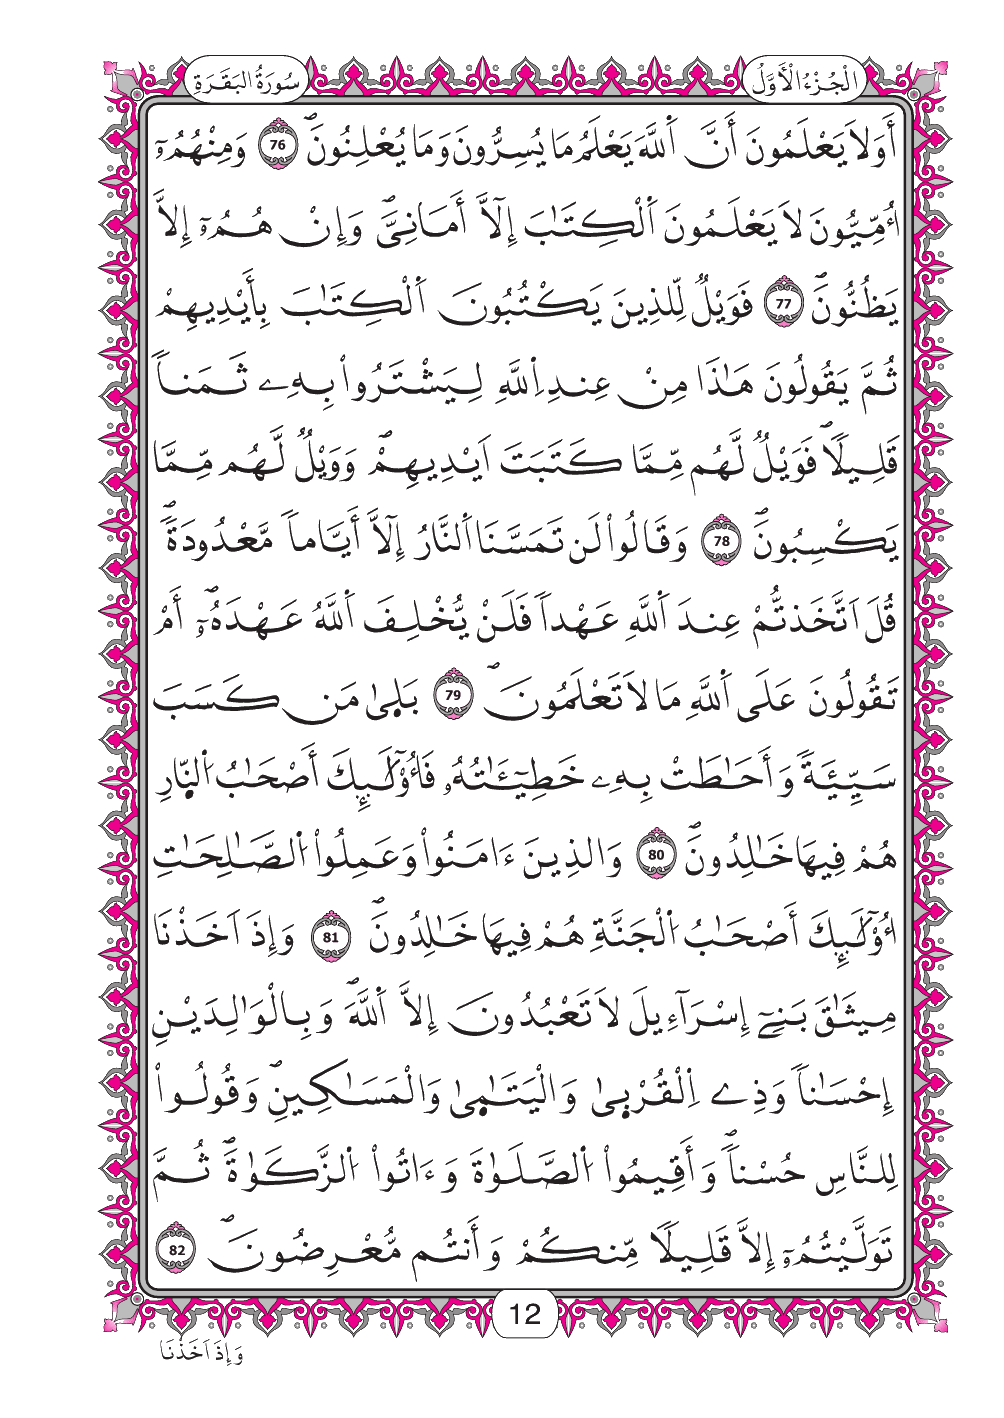 الْجُزْءُ الْأَوَّلُ
سُورَةُ الْبَقَرَةِ
أَوَلَا يَعْلَمُونَ أَنَّ اَ۬للَّهَ يَعْلَمُ مَا يُسِرُّونَ وَمَا يُعْلِنُونَۖ 76 وَمِنْهُمُۥٓ
أُمِّيُّونَ لَا يَعْلَمُونَ اَ۬لْكِتَٰبَ إِلَّآ أَمَانِيَّۖ وَإِنْ هُمُۥٓ إِلَّا
يَظُنُّونَۖ 77 فَوَيْلٞ لِّلذِينَ يَكْتُبُونَ اَ۬لْكِتَٰبَ بِأَيْدِيهِمْ
ثُمَّ يَقُولُونَ هَٰذَا مِنْ عِندِ اِ۬للَّهِ لِيَشْتَرُواْ بِهِۦ ثَمَناٗ
قَلِيلاٗۖ فَوَيْلٞ لَّهُم مِّمَّا كَتَبَتَ اَيْدِيهِمْۖ وَوَيْلٞ لَّهُم مِّمَّا
يَكْسِبُونَۖ 78 وَقَالُواْ لَن تَمَسَّنَا اَ۬لنَّارُ إِلَّآ أَيَّاماٗ مَّعْدُودَةٗۖ
قُلَ اَتَّخَذتُّمْ عِندَ اَ۬للَّهِ عَهْداٗ فَلَنْ يُّخْلِفَ اَ۬للَّهُ عَهْدَهُۥٓۖ أَمْ
تَقُولُونَ عَلَى اَ۬للَّهِ مَا لَا تَعْلَمُونَۖ 79 بَلَىٰ مَن كَسَبَ
سَيِّئَةٗ وَأَحَٰطَتْ بِهِۦ خَطِيٓـَٰٔتُهُۥ فَأُوْلَٰٓئِكَ أَصْحَٰبُ اُ۬لنّ۪ارِ
هُمْ فِيهَا خَٰلِدُونَۖ 80 وَالذِينَ ءَامَنُواْ وَعَمِلُواْ اُ۬لصَّٰلِحَٰتِ
أُوْلَٰٓئِكَ أَصْحَٰبُ اُ۬لْجَنَّةِ هُمْ فِيهَا خَٰلِدُونَۖ 81 وَإِذَ اَخَذْنَا
مِيثَٰقَ بَنِےٓ إِسْرَآءِيلَ لَا تَعْبُدُونَ إِلَّا اَ۬للَّهَۖ وَبِالْوَٰلِدَيْنِ
إِحْسَٰناٗ وَذِے اِ۬لْقُرْب۪ىٰ وَالْيَتَٰم۪ىٰ وَالْمَسَٰكِينِۖ وَقُولُواْ
لِلنَّاسِ حُسْناٗۖ وَأَقِيمُواْ اُ۬لصَّلَوٰةَ وَءَاتُواْ اُ۬لزَّكَوٰةَۖ ثُمَّ
تَوَلَّيْتُمُۥٓ إِلَّا قَلِيلاٗ مِّنكُمْ وَأَنتُم مُّعْرِضُونَۖ 82
12
وَإِذَ اَخَذْنَا